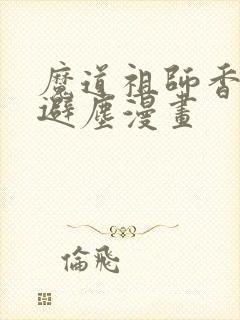 魔道祖師香
避塵漫畫
倫飛